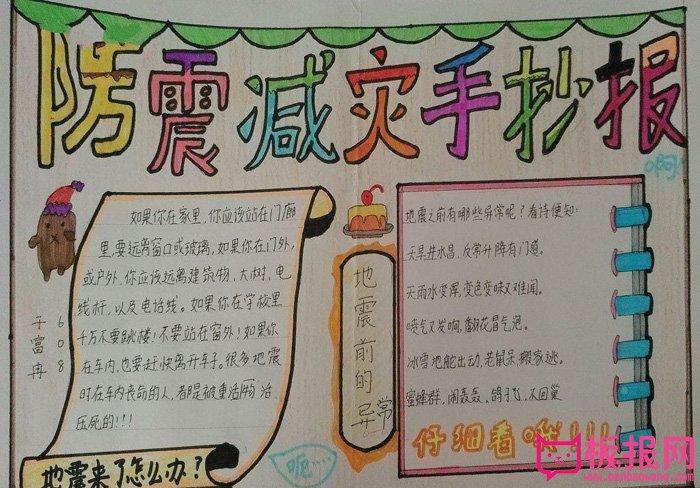 防震减灾手抄报
啊
如果你在家里,你应该站在门廊
里,要远离窗口或玻璃,如果你在门外,
或户外,你应该远离建筑物,大树,电
线杆,以及电话线。如果你在学校里
千万不要跳楼!不要站在窗外!如果你
在车内,也要赶快离开车子。很多地震
时在车内丧命的人,都是被重活物活
压死的!!!
608
于富冉
地震来了怎么办?
呃…
地震前的异常
地震之前有哪些异常呢?看诗便知:
天旱井水冒,反常升降有门道。
天雨水变浑,变色变味又难闻。
喷气又发响,翻花冒气泡。
冰雪地蛇出动,老鼠呆,搬家逃。
蜜蜂群,闹轰轰、鸽子飞,不回巢
仔细看哟!!!
板报网
www.banbaowang.com